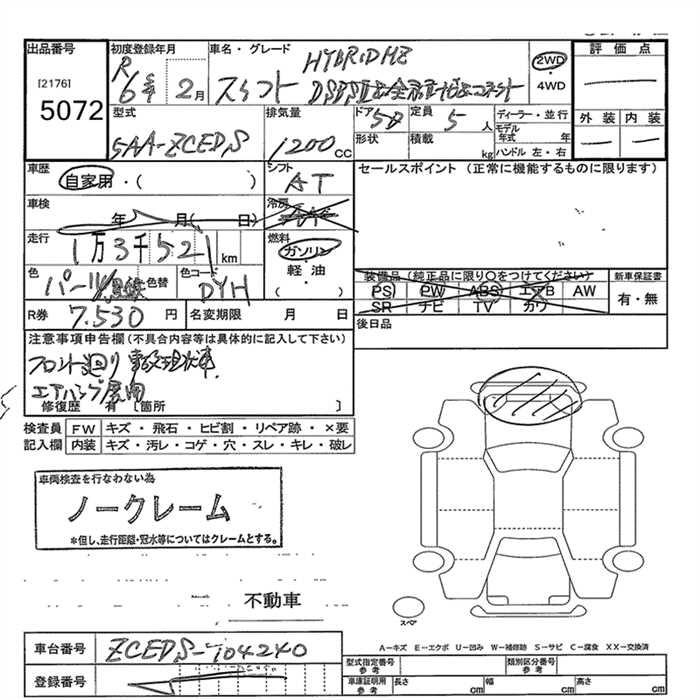 出品番号
[2176]
5072
初度登録年月
R
6年 2月
車名・グレード
HYBRID MZ
スイフト
2WD
・
4WD
評価点
型式
5AA-ZCEDS
排気量
1200 cc
ドア 5D
定員 5 人
形状
積載 kg
ディーラー・並行
モデル年式 年
ハンドル 左・右
外装
内装
車歴
自家用・( )
シフト
AT
セールスポイント (正常に機能するものに限ります)
車検
年 月( 日)
冷房
走行
1万3千521km
燃料
ガソリン
・
軽油
( )
色
パール/黒
色替
色コード
DYH
装備品 (純正品に限り○をつけてください)
PS PW ABS エアB AW
SR ナビ TV カワ
新車保証書
有・無
R券 7.530 円
名変期限 月 日
後日品
注意事項申告欄(不具合内容等は具体的に記入して下さい)
フロント廻り 事故現状車
エアバッグ展開
修復歴 有 〔箇所 〕
検査員記入欄
FW キズ・飛石・ヒビ割・リペア跡・×要
内装 キズ・汚レ・コゲ・穴・スレ・キレ・破レ
車両検査を行なわない為
ノークレーム
*但し、走行距離・冠水等についてはクレームとする。
不動車
スペア
A―キズ E―エクボ U―凹み W―補修跡 S―サビ C―腐食 XX―交換済
車台番号 ZCEDS-104240
登録番号
型式指定番号 参考
類別区分番号 参考
車庫証明用 参考
長さ cm
幅 cm
高さ cm